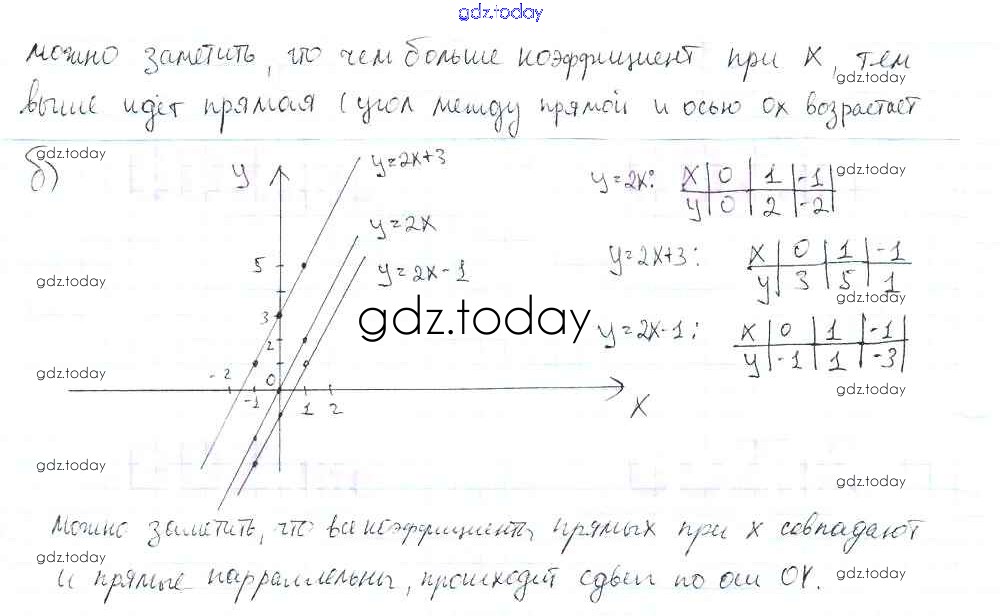 gdz.today
можно заметить, что чем больше коэффициент при X, тем
gdz.today
выше идёт прямая (угол между прямой и осью OX возрастает
gdz.today
б)
y
y=2x+3
y=2x
y=2x-1
5
3
2
0
-2
-1
1
2
X
y=2x:
X | 0 | 1 | -1
y | 0 | 2 | -2
gdz.today
y=2x+3:
X | 0 | 1 | -1
y | 3 | 5 | 1
gdz.today
gdz.today
gdz.today
y=2x-1:
X | 0 | 1 | -1
y | -1 | 1 | -3
gdz.today
gdz.today
gdz.today
gdz.today
Можно заметить, что все коэффициенты прямых при x совпадают
gdz.today
и прямые парраллельны, происходит сдвиг по оси OY.
gdz.today